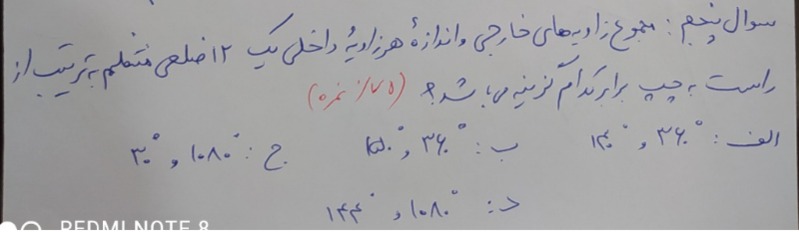 سوال پنجم: مجموع زاویه‌های خارجی و اندازهٔ هر زاویهٔ داخلی یک ۱۲ ضلعی منتظم به ترتیب از
راست به چپ برابر کدام گزینه می‌باشد؟ (۰/۷۵ نمره)
الف: ۳۶۰° و ۱۴۰° ب: ۳۶۰° و ۱۵۰° ج: ۱۰۸۰° و ۳۰°
د: ۱۰۸۰° و ۱۴۴°
REDMI NOTE 8